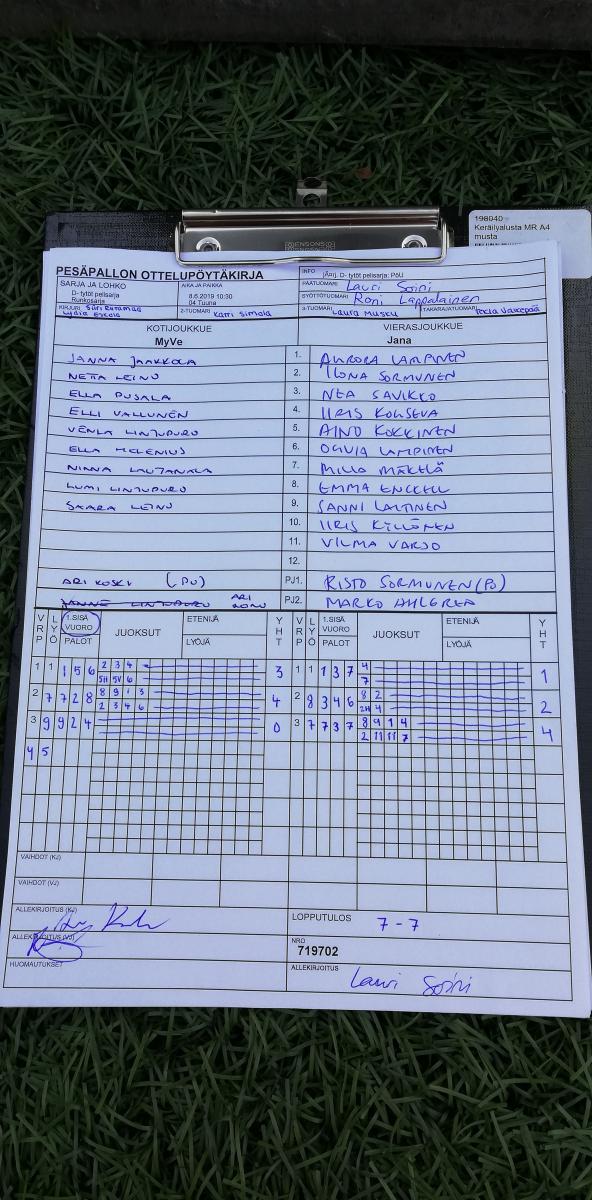 198040
Keräilyalusta MR A4
musta
PESÄPALLON OTTELUPÖYTÄKIRJA
SARJA JA LOHKO
D- tytöt pelisarja
Runkosarja
AIKA JA PAIKKA
8.6.2019 10:30
04 Tuuna
INFO
järj. D- tytöt pelisarja: PöU
PÄÄTUOMARI Lauri Soini
SYÖTTÖTUOMARI Roni Lappalainen
KIRJURI
2-TUOMARI Karri Simola
3-TUOMARI Laura Musku
TAKARAJATUOMARI
KOTIJOUKKUE
MyVe
VIERASJOUKKUE
Jana
JANNA JAAKKOLA 1. AURORA LAMPINEN
NETTA LEINO 2. ILONA SORMUNEN
ELLA PUSALA 3. NEA SAVIKKO
ELLI VALLUNEN 4. IIRIS KOUSEVA
VENLA LINTUPURO 5. AINO KOKKINEN
ELLA HELENIUS 6. OLIVIA LAMPINEN
NINNA LAUTANALA 7. MILLA MÄKELÄ
LUMI LINTUPURO 8. EMMA ENCKELL
SAARA LEINO 9. SANNI LAITINEN
10. IIRIS KYLLÖNEN
11. VILMA VARJO
12.
ARI KOSKI (PJ) PJ1. RISTO SORMUNEN (PJ)
PJ2. MARKO AHLGREN
VRP LYÖ 1.SISÄ VUORO PALOT JUOKSUT ETENIJÄ LYÖJÄ YHT VRP LYÖ 1.SISÄ VUORO PALOT JUOKSUT ETENIJÄ LYÖJÄ YHT
1 1 1 5 6 2 3 4 3 1 1 1 3 7 4 1
5H 5V 6 7
2 7 7 2 8 8 9 1 3 4 2 8 3 4 6 8 2 2
2 3 4 6 2H 4
3 9 9 2 4 0 3 7 7 3 7 8 9 1 4 4
2 11 11 7
4 5
VAIHDOT (KJ)
VAIHDOT (VJ)
ALLEKIRJOITUS (KJ)
ALLEKIRJOITUS (VJ)
HUOMAUTUKSET
LOPPUTULOS 7-7
NRO
719702
ALLEKIRJOITUS Lauri Soini